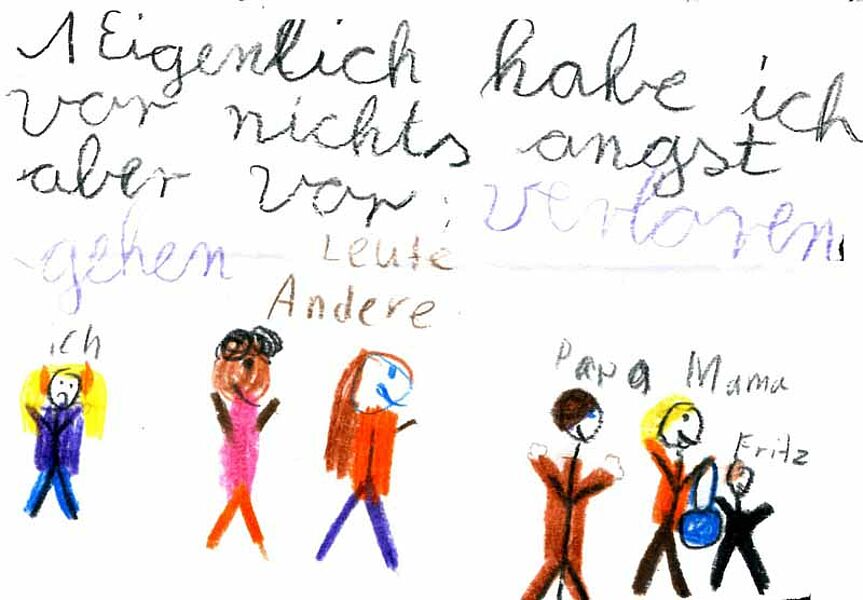 1 Eigentlich habe ich
vor nichts angst
aber vor: verloren
gehen
Leute
Andere
ich
Papa Mama
Fritz